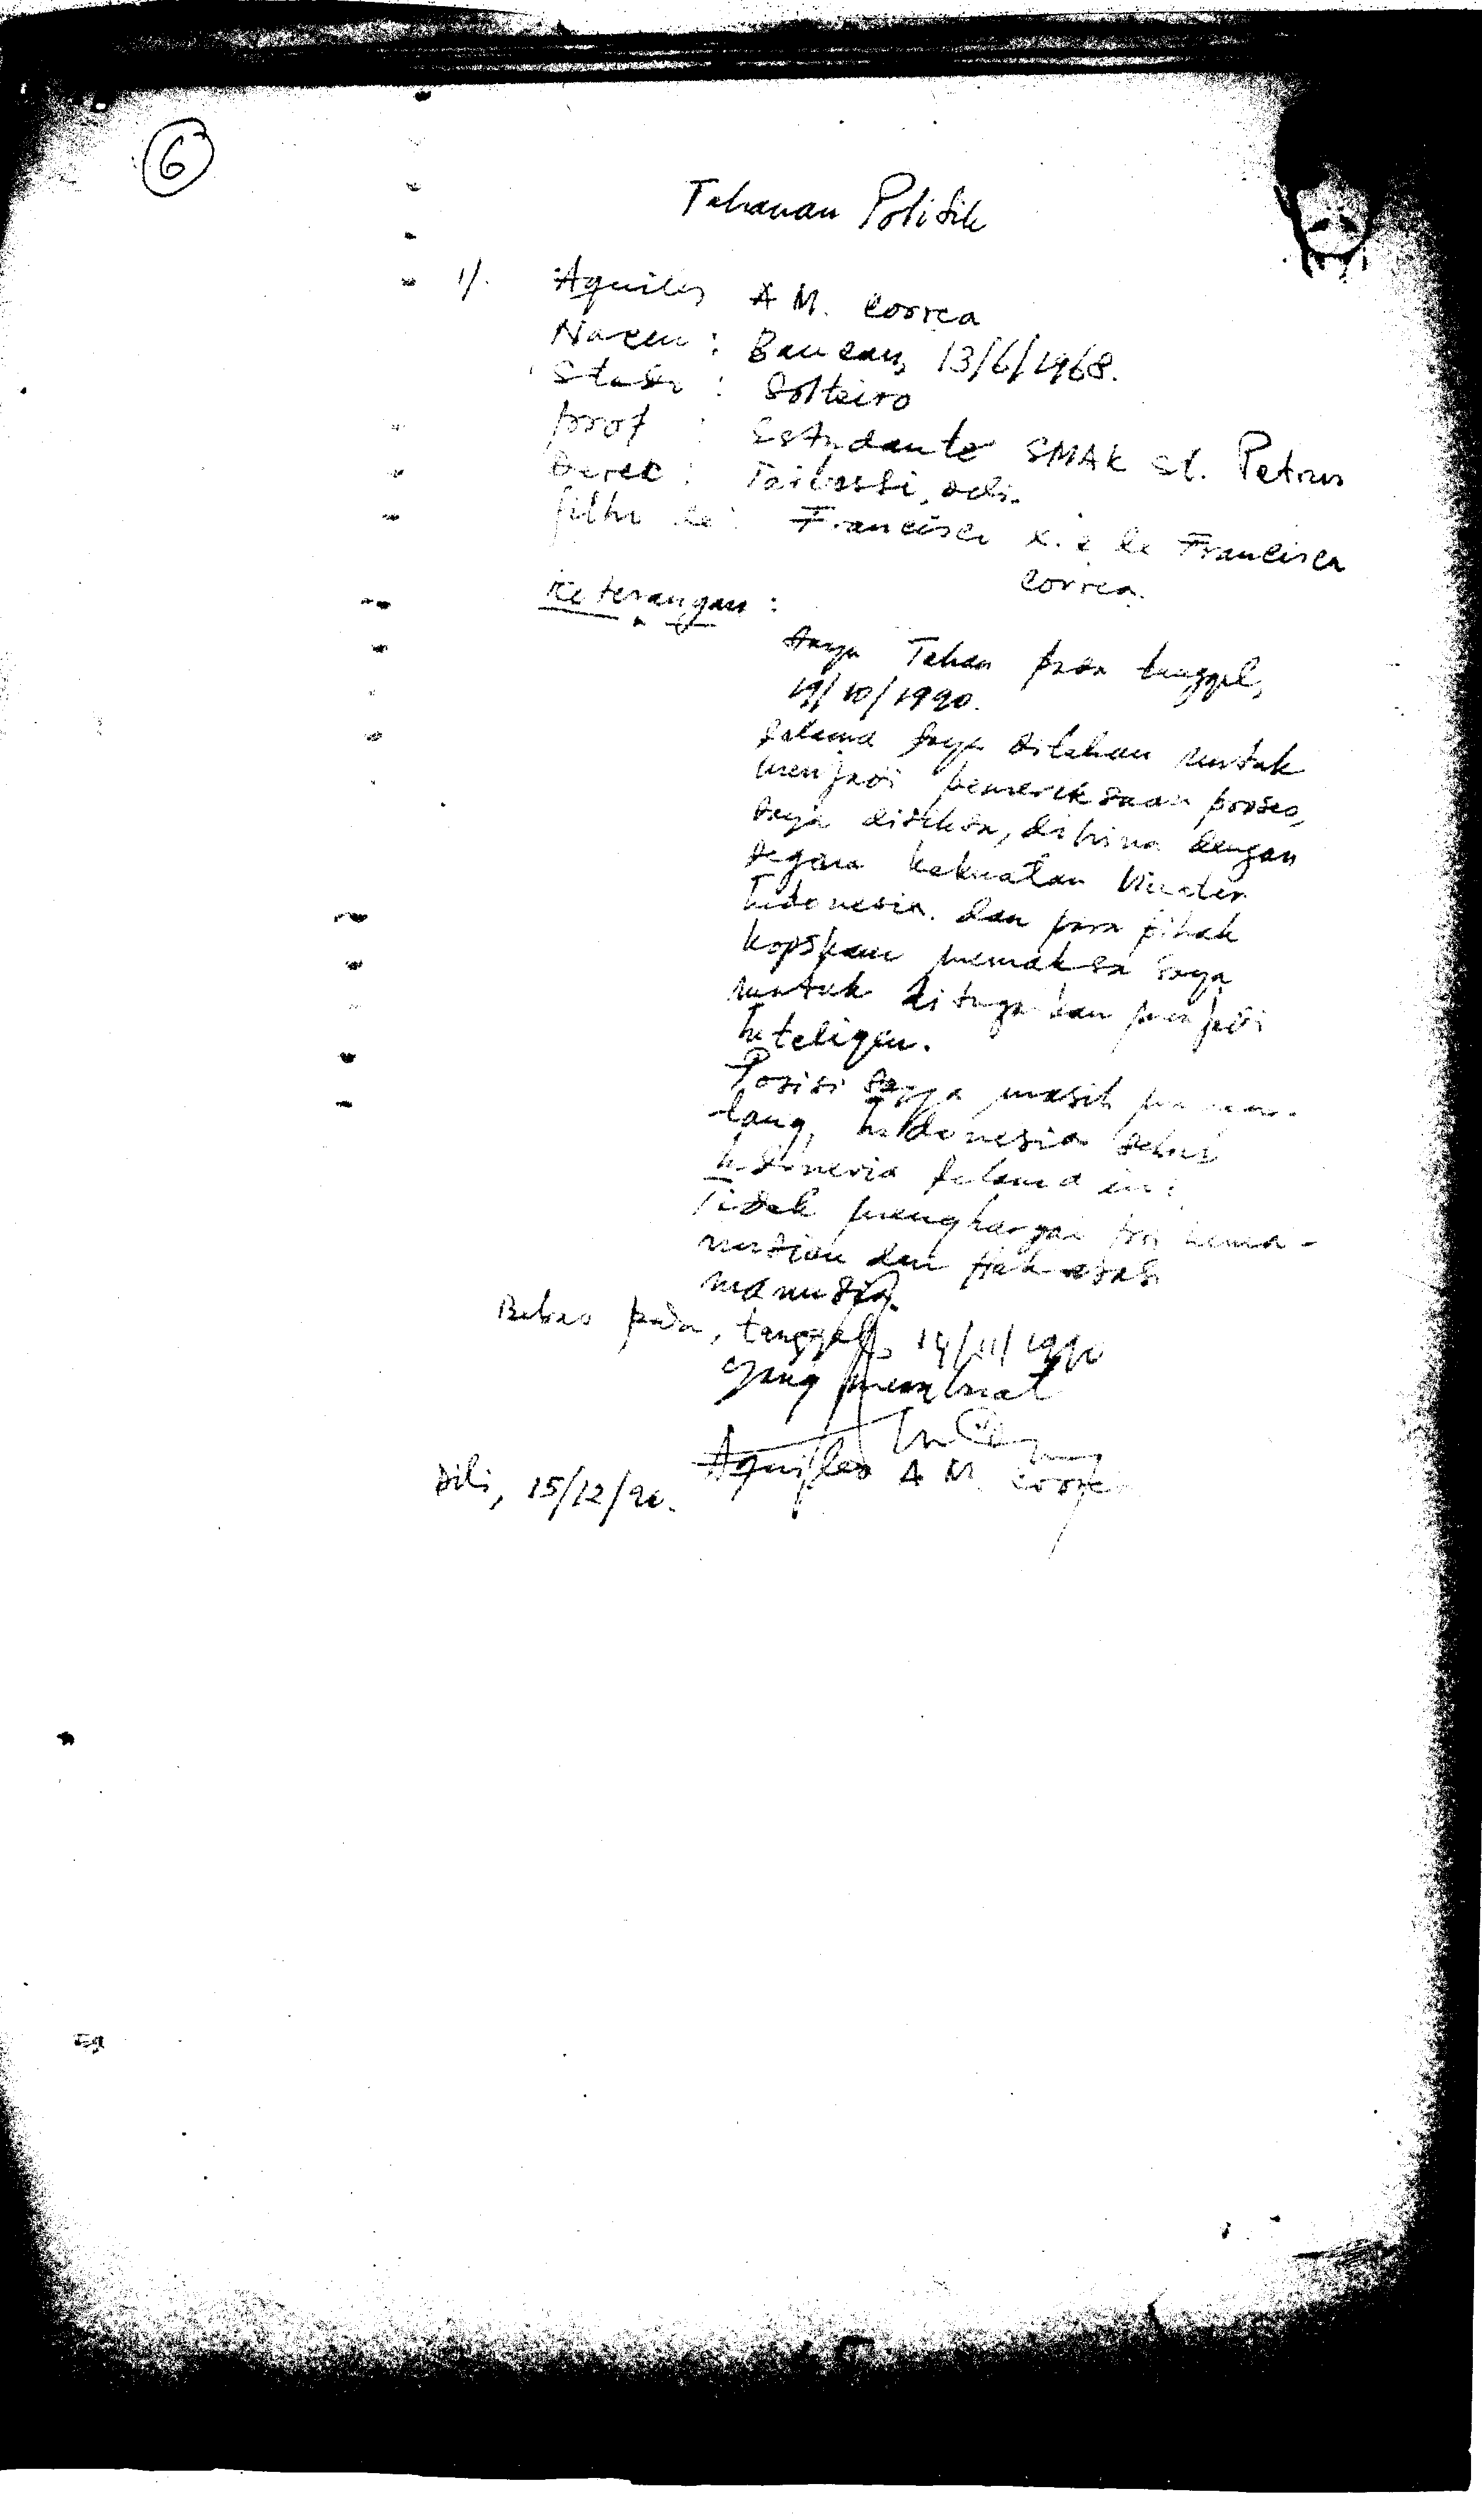 6
Tahanan Politik
1/. Aquiles A M. Correa
Naceu : Baucau, 13/6/1968.
Stado : Solteiro
prof : Estudante SMAK St. Petrus
Derec : Taibessi, Dili.
filho de : Francisco X. e de Francisca
Correa.
Keterangan :
Saya Tahan pada tanggal,
19/10/1990.
Selama saya ditahan untuk
menjadi pemeriksaan proses,
saya disiksa, dihina dengan
segara kekuatan
Indonesia. dan para pihak
kopskam memaksa saya
untuk ditugaskan menjadi
Inteligen.
Posisi saya masih
Indonesia sebab
Indonesia selama ini
Tidak menghargai pri kema-
nusian dan Hak asasi
manusia.
Bebas pada, tanggal, 14/11/1990
yang membuat
Aquiles A M. Correa
Dili, 15/12/90.